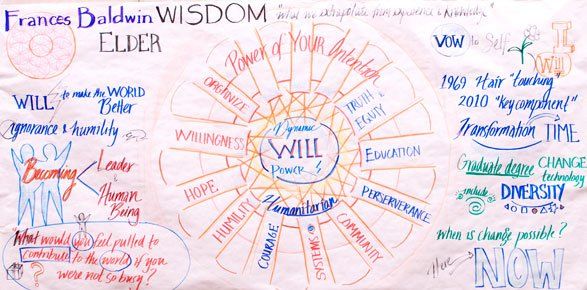 Frances Baldwin WISDOM
"what we extrapolate from experience & knowledge"
ELDER
WILL to make the WORLD
Better
ignorance & humility
Becoming
Leader
&
Human
Being
"What would you feel pulled to
contribute to the world if you
were not so busy?
Power of YOUR Intention
ORGANIZE
WILLINGNESS
HOPE
HUMILITY
COURAGE
SYSTEMS
COMMUNITY
PERSERVERANCE
EDUCATION
TRUTH &
EQUITY
Dynamic
WILL
Power
Humanitarian
VOW to Self
I
Will
1969 Hair "touching"
2010 "key component"
Transformation TIME
Graduate degree CHANGE
technology
include DIVERSITY
when is change possible?
Here
NOW